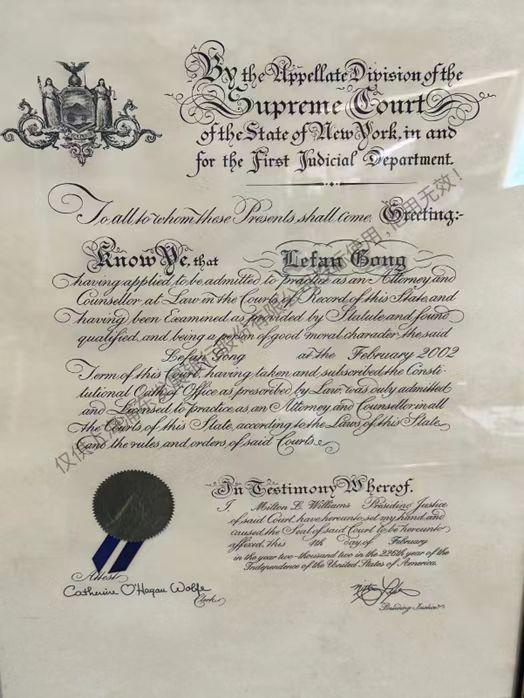 By the Appellate Division of the
Supreme Court
of the State of New York, in and
for the First Judicial Department.
To all to whom these Presents shall come, Greeting:-
Know Ye, that Lefan Gong
having applied to be admitted to practice as an Attorney and
Counsellor at Law in the Courts of Record of this State, and
having been Examined as provided by Statute and found
qualified, and being a person of good moral character, the said
Lefan Gong at the February 2002
Term of this Court, having taken and subscribed the Consti-
tutional Oath of Office as prescribed by Law, was duly admitted
and Licensed to practice as an Attorney and Counsellor in all
the Courts of this State, according to the Laws of this State
and the rules and orders of said Courts.
In Testimony Whereof,
I, Milton L. Williams Presiding Justice
of said Court, have hereunto set my hand and
caused the Seal of said Court to be hereunto
affixed, this 4th day of February
in the year two-thousand two in the 226th year of the
Independence of the United States of America.
Attest
Catherine O'Hagan Wolfe
Clerk
Presiding Justice
仅供 使用 使用,他用无效!